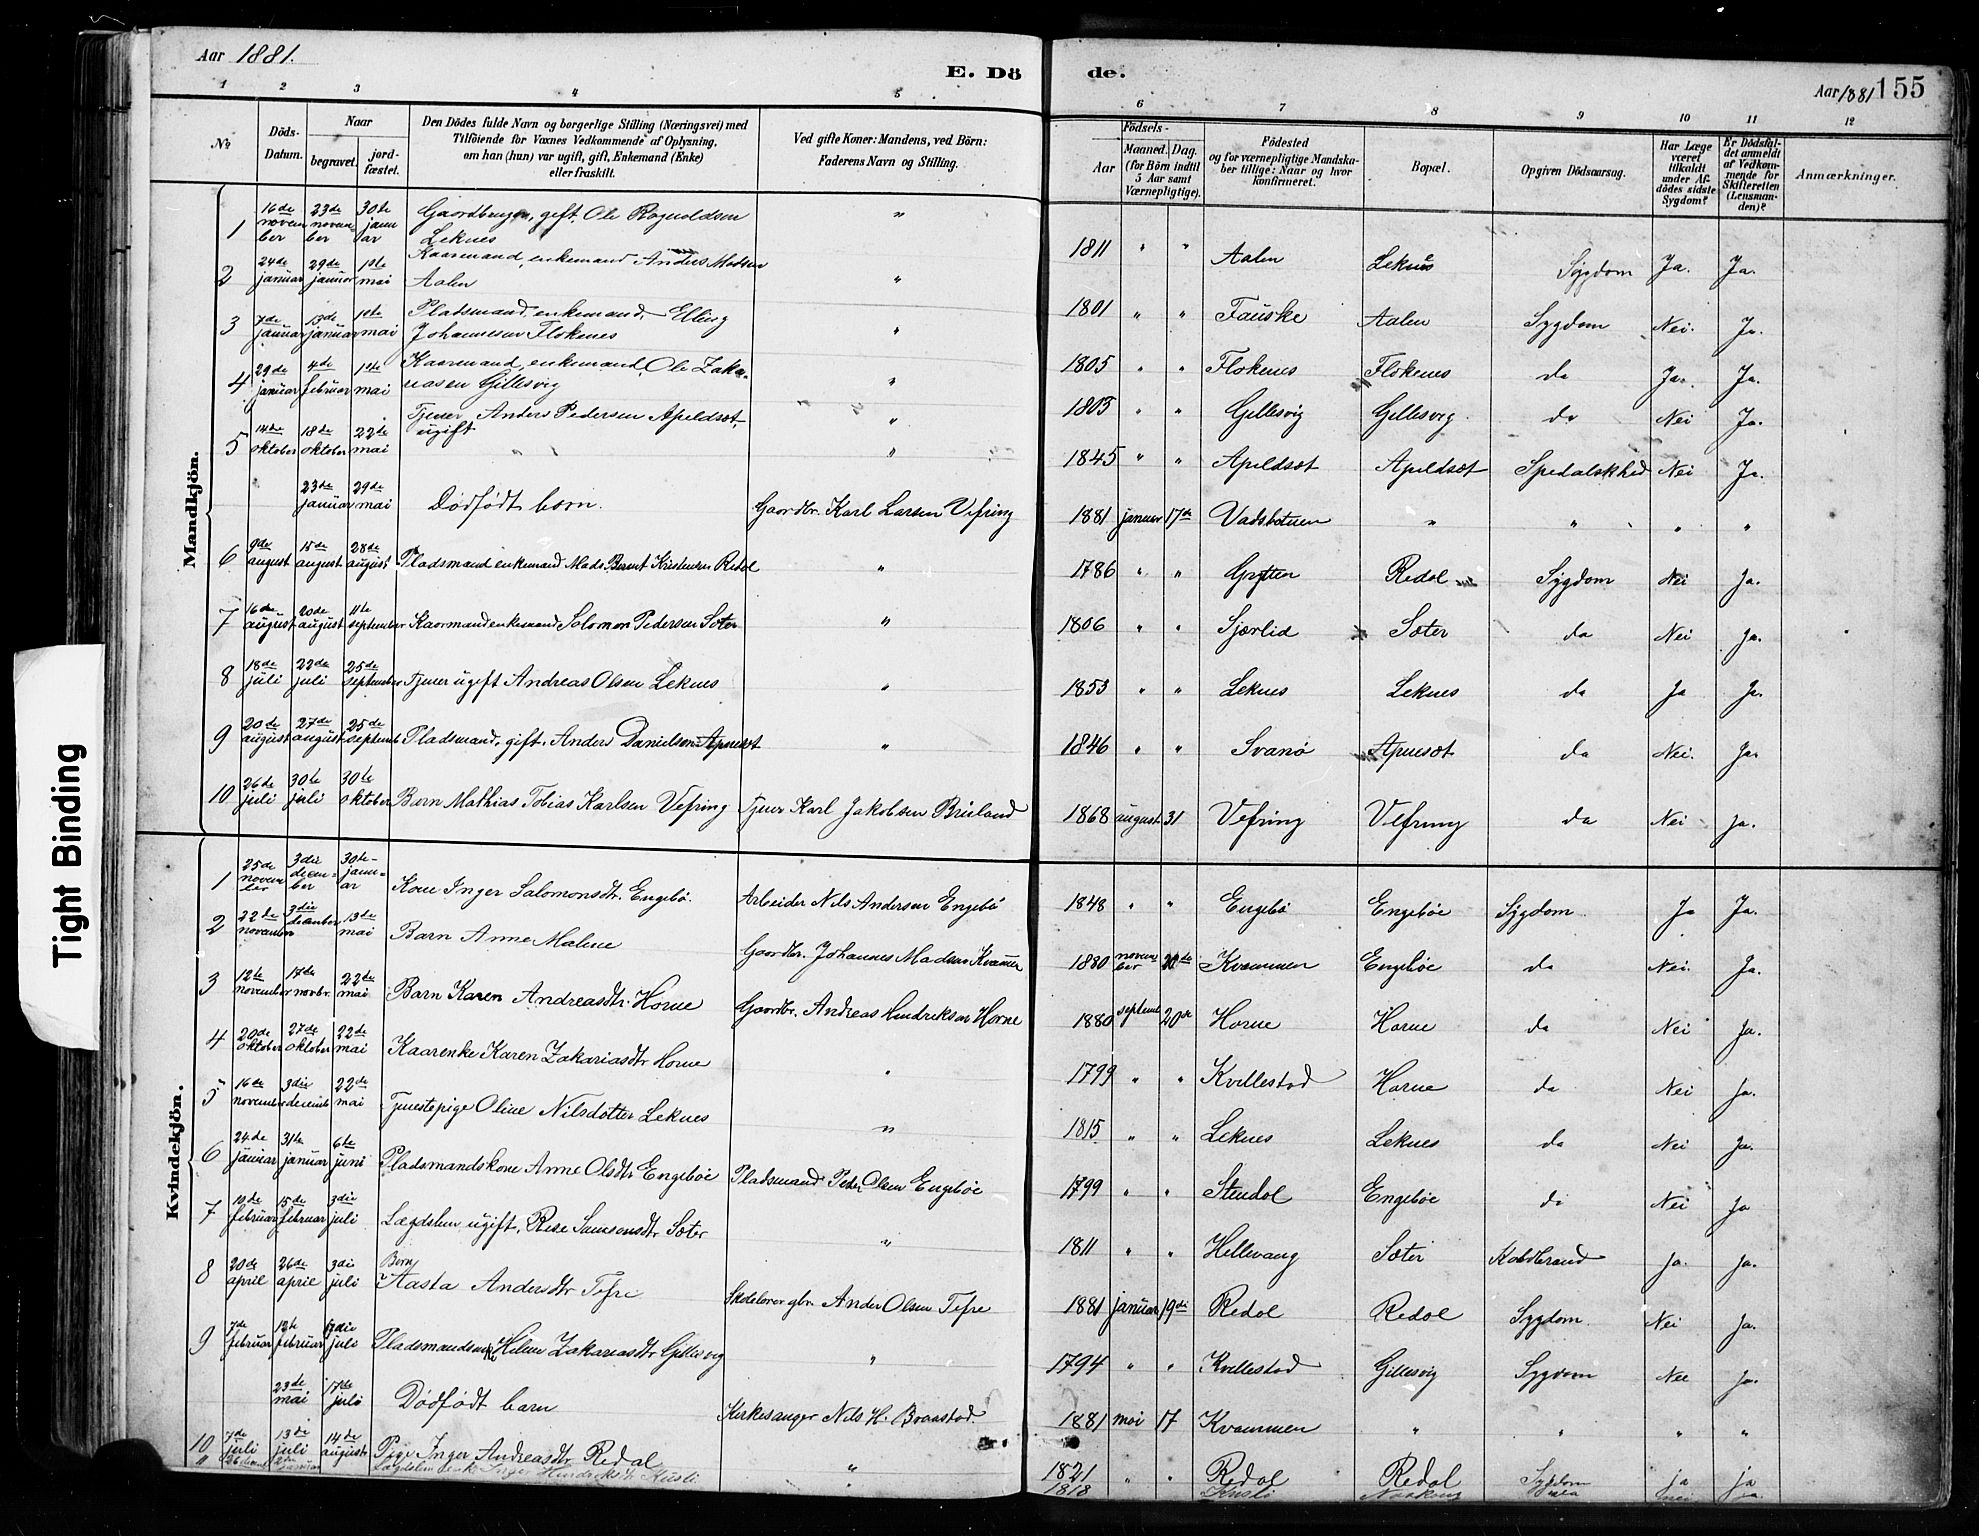 Aar 1881.
E. Dö
de.
Aar 1881 155
1 2 3 4 5 6 7 8 9 10 11 12
No
Döds-Datum.
Naar
begravet.
jord-fæstet.
Den Dödes fulde Navn og borgerlige Stilling (Næringsvei) med
Tilföiende for Voxnes Vedkommende af Oplysning,
om han (hun) var ugift, gift, Enkemand (Enke)
eller fraskilt.
Ved gifte Koner: Mandens, ved Börn:
Faderens Navn og Stilling.
Födsels-
Aar
Maaned. Dag.
(for Börn indtil
5 Aar samt
Værnepligtige).
Födested
og for værnepligtige Mandska-
ber tillige: Naar og hvor
konfirmeret.
Bopæl.
Opgiven Dödsaarsag.
Har Læge
været
tilkaldt
under Af-
dödes sidste
Sygdom?
Er Dödsfal-
det anmeldt
af Vedkom-
mende for
Skifteretten
(Lensman-
den)?
Anmærkninger.
Mandkjön.
1 16de november 23de november 30te januar Gaardbruger, gift Ole Rognaldsen Leknes " 1811 " " Aalen Leknes Sygdom Ja. Ja.
2 24de januar 29de januar 1ste mai Kaarmand, enkemand Anders Madsen Aalen " 1801 " " Fauske Aalen Sygdom Nei. Ja.
3 7de januar 13de januar 1ste mai Pladsmand, enkemand, Elling Johannesen Flokenes " 1805 " " Flokenes Flokenes do Ja. Ja.
4 29de januar 4de februar 1ste mai Kaarmand, enkemand, Ole Zakariasen Gillesvig " 1803 " " Gillesvig Gillesvig do Nei Ja.
5 14de oktober 18de oktober 22de mai Tjener Anders Pedersen Apeldsæt, ugift " 1845 " " Apeldsæt Apeldsæt Spedalskhed Nei Ja.
23de januar 29de mai Dödfödt barn. Gaardbr. Karl Larsen Vefring 1881 januar 17de Vadsbotnen " " " "
6 9de august 15de august 28de august Pladsmand enkemand Mads Berent Kristensen Redal " 1786 " " Grytten Redal Sygdom Nei Ja.
7 16de august 20de august 11te september Kaarmand enkemand Salomon Pedersen Sæter " 1806 " " Sjærlid Sæter do Nei Ja.
8 18de juli 22de juli 25de september Tjener ugift Andreas Olsen Leknes " 1853 " " Leknes Leknes do Ja Ja.
9 20de august 27de august 25de septemb Pladsmand, gift, Anders Danielsen Apnesæt " 1846 " " Svanö Apnesæt do Nei. Ja.
10 26de juli 30te juli 30te oktober Barn Mathias Tobias Karlsen Vefring Tjener Karl Jakobsen Brüland 1868 august 31 Vefring Vefring do Nei Ja.
Kvindekjön.
1 25de november 3die december 30te januar Kone Inger Salomonsdtr. Engebö. Arbeider Nils Andersen Engebö 1848 " " Engebö Engeböe Sygdom Ja Ja.
2 22de november 3die december 13de mai Barn Anne Malene Gaardbr. Johannes Madsen Kvammen 1880 november 20de Kvammen Engeböe do Nei. Ja.
3 12te november 17de novbr. 22de mai Barn Karen Andreasdtr. Horne Gaardbr. Andreas Hendriksen Horne 1880 septembe 20de Horne Horne do Nei Ja.
4 20de oktober 27de oktober 22de mai Kaarenke Karen Zakariasdtr Horne " 1799 " " Kvellestad Horne do Nei Ja.
5 16de november 3die decemb 22de mai Tjenestepige Oline Nilsdotter Leknes " 1815 " " Leknes Leknes do Nei Ja.
6 24de januar 31te januar 6te juni Pladsmandskone Anne Olsdtr Engeböe Pladsmand Peder Olsen Engeböe 1799 " " Stendal Engeböe do Nei Ja
7 10de februar 15de februar 3die juli Lægdslem ugift, Rese Samsonsdtr Sæter " 1811 " " Hellevang Sæter Koldbrand Ja. Ja.
8 20de april 26de april 3die juli Barn Aasta Andersdtr Tefre Skolelærer gbr. Ander Olsen Tefre 1881 januar 19de Redal Redal Sygdom. Nei Ja.
9 7de februar 12te februar juli Helene Zakariasdtr Gillesvig " 1794 " " Kvellestad Gillesvig Sygdom Nei Ja.
23de mai 17de juli Dödfödt barn Kirkesanger Nils H. Braastad. 1881 mai 17 Kvammen " " " "
10 7de juli 13de juli 14de august Pige Inger Andreasdtr Redal " 1821 " " Redal Redal Sygdom ja ja
1818 nei
Tight Binding